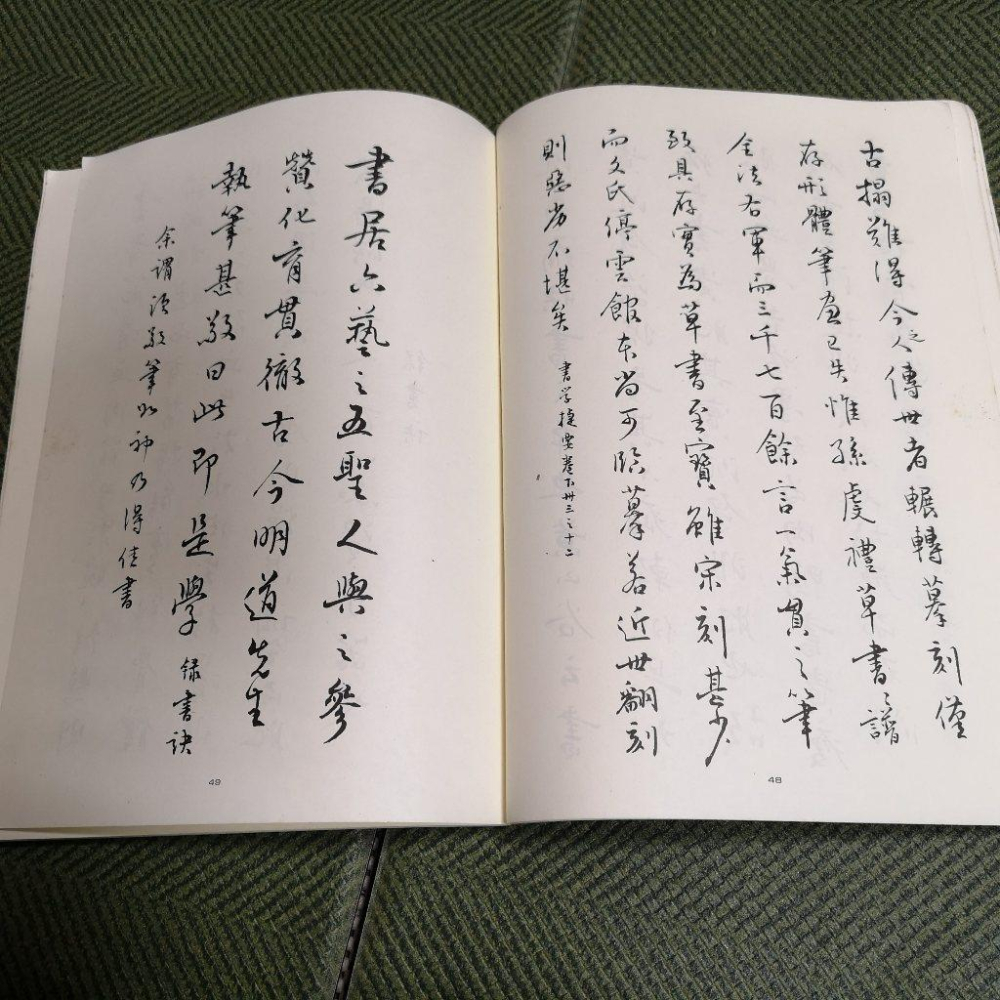 古搨難得今之人傳世者輾轉摹刻僅
存形體筆画已失惟孫虔禮草書之譜
全法右軍而三千七百餘言一氣貫之筆
致具存實為草書至寶雖宋刻甚少
而文氏停雲館本尚可臨摹若近世翻刻
則惡劣不堪矣
書学捷要卷下卅三之十二
48
書居六藝之五聖人與之參
贊化育貫徹古今明道先生
執筆甚敬曰此即是學
録書訣
余謂須敬筆如神乃得佳書
49